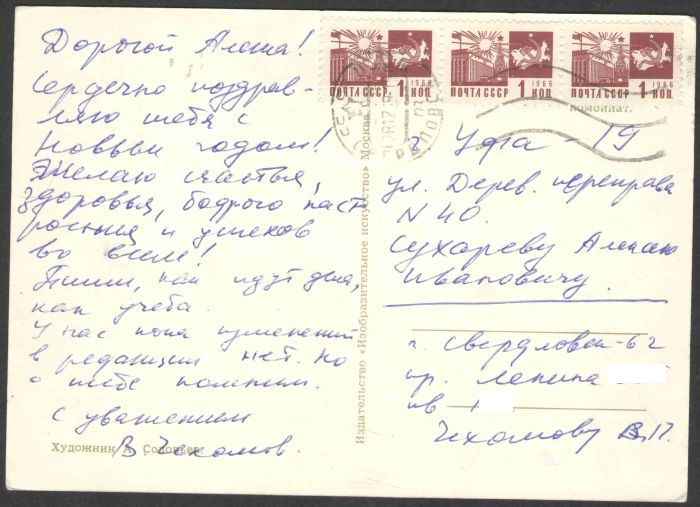 Дорогой Алеша!
Сердечно поздрав-
ляю тебя с
Новым годом!
Желаю счастья,
здоровья, бодрого наст
роения и успехов
во всем!
Пиши, как идут дела,
как учеба.
У нас пока изменений
в редакции нет. Но
о тебе помним.
С уважением
В Чехомов.
Художник А. Соловьев.
Издательство «Изобразительное искусство» Москва
ПОЧТА СССР 1 КОП 1966
ПОЧТА СССР 1 КОП 1966
ПОЧТА СССР 1 КОП 1966
г Уфа - 19
ул. Дерев. переправа
N 40.
Сухареву Алексею
Ивановичу.
г. Свердловск-62
пр. Ленина
кв
Чехомову В.П.